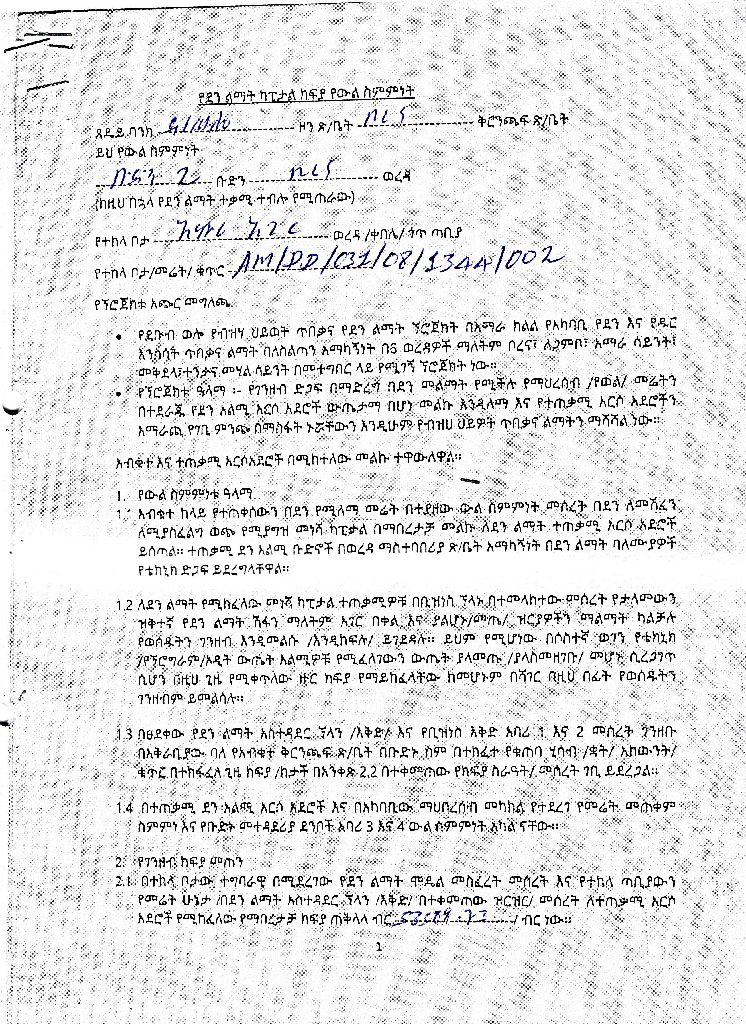 የደን ልማት ካፒታል ክፍያ የውል ስምምነት
ጸደይ ባንክ ዞን ጽ/ቤት ቦረና ቅርንጫፍ ጽ/ቤት
ይህ የውል ስምምነት
ቡድን 2 ቡድን ቦረና ወረዳ
(ከዚህ በኋላ የደን ልማት ተቃሚ ተብሎ የሚጠራው)
የተከላ ቦታ ወረዳ /ቀበሌ/ ጎጥ ጣቢያ
የተከላ ቦታ/መሬት/ ቁጥር AM/DD/031/08/1344/002
የፕሮጀክቱ አጭር መግለጫ
• የደቡብ ወሎ የብዝሃ ህይወት ጥበቃና የደን ልማት ፕሮጀክት በአማራ ክልል የአካባቢ የደን እና የዱር
እንስሳት ጥበቃና ልማት ባለስልጣን አማካኝነት በ6 ወረዳዎች ማለትም በረና፣ ለጋምቦ፣ አማራ ሳይንት፣
መቅደላ፣ተንታና መሃል ሳይንት በመተግበር ላይ የሚገኝ ፕሮጀክት ነው።
• የፕሮጀክቱ ዓላማ ፡- የገንዘብ ድጋፍ በማድረግ በደን መልማት የሚችሉ የማህረሰብ /የወል/ መሬትን
በተደራጁ የደን አልሚ አርሶ አደሮች ውጤታማ በሆነ መልኩ እንዲለማ እና የተጠቃሚ አርሶ አደሮችን
አማራጪ የገቢ ምንጭ በማስፋት ኑሯቸውን እንዲሁም የብዝሀ ህይዎች ጥበቃና ልማትን ማሻሻል ነው።
አብቁተ እና ተጠቃሚ አርሶአደሮች በሚከተለው መልኩ ተዋውለዋል።
1. የውል ስምምነቱ ዓላማ
1.1 አብቁተ ከላይ የተጠቀሰውን በደን የሚለማ መሬት በተያዘው ውል ስምምነት መሰረት በደን ለመሸፈን
ለሚያስፈልግ ወጭ የሚያግዝ መነሻ ካፒታል በማበረታቻ መልኩ ለደን ልማት ተጠቃሚ አርሶ አደሮች
ይሰጣል። ተጠቃሚ ደን አልሚ ቡድኖች በወረዳ ማስተባበሪያ ጽ/ቤት አማካኝነት በደን ልማት ባለሙያዎች
የቴክኒክ ድጋፍ ይደረግላቸዋል።
1.2 ለደን ልማት የሚከፈለው መነሻ ካፒታል ተጠቃሚዎቹ በቢዝነስ ፕላኑ በተመላከተው መሰረት የታለመውን
ዝቅተኛ የደን ልማት ሽፋን ማለትም አገር በቀል እና ያልሆኑ/መጤ/ ዝርያዎችን ማልማት ካልቻሉ
የወሰዱትን ገንዘብ እንዲመልሱ /እንዲከፍሉ/ ይገደዳሉ። ይህም የሚሆነው በሶስተኛ ወገን የቴክኒክ
/የፕሮግራም/ኦዲት ውጤት አልሚዎቹ የሚፈለገውን ውጤት ያላመጡ /ያላስመዘገቡ/ መሆኑ ሲረጋገጥ
ሲሆን በዚህ ጊዜ የሚቀጥለው ዙር ክፍያ የማይከፈላቸው ከመሆኑም በሻገር በዚህ በፊት የወሰዱትን
ገንዘብም ይመልሳሉ።
1.3 በፀደቀው የደን ልማት አስተዳደር ፕላን /እቅድ/ እና የቢዝነስ እቅድ አባሪ 1 እና 2 መሰረት ገንዘቡ
በአቅራቢያው ባለ የአብቁተ ቅርንጫፍ ጽ/ቤት በቡድኑ ስም በተከፈተ የቁጠባ ሂሳብ /ቋት/ አካውንት/
ቁጥር በተከፋፈለ ጊዜ ከፍያ /ከታች በአንቀጽ 2.2 በተቀመጠው የክፍያ ስራዓት/ መሰረት ገቢ ይደረጋል።
1.4 በተጠቃሚ ደን አልሚ አርሶ አደሮች እና በአካባቢው ማህበረሰብ መካከል የተደረገ የመሬት መጠቀም
ስምምነ እና የቡድኑ መተዳደሪያ ደንቦች አባሪ 3 እና 4 ውል ስምምነት አካል ናቸው።
2. የገንዘብ ክፍያ መጠን
2.1 በተከላ ቦታው ተግባራዊ በሚደረገው የደን ልማት ሞዴል መስፈረት መሰረት እና የተከላ ጣቢያውን
የመሬት ሁኔታ /በደን ልማት አስተዳደር ፕላን /እቅድ/ በተቀመጠው ዝርዝር/ መሰረት ለተጠቃሚ አርሶ
አደሮች የሚከፈለው የማበረታቻ ክፍያ ጠቅላላ ብር / ብር ነው።
1